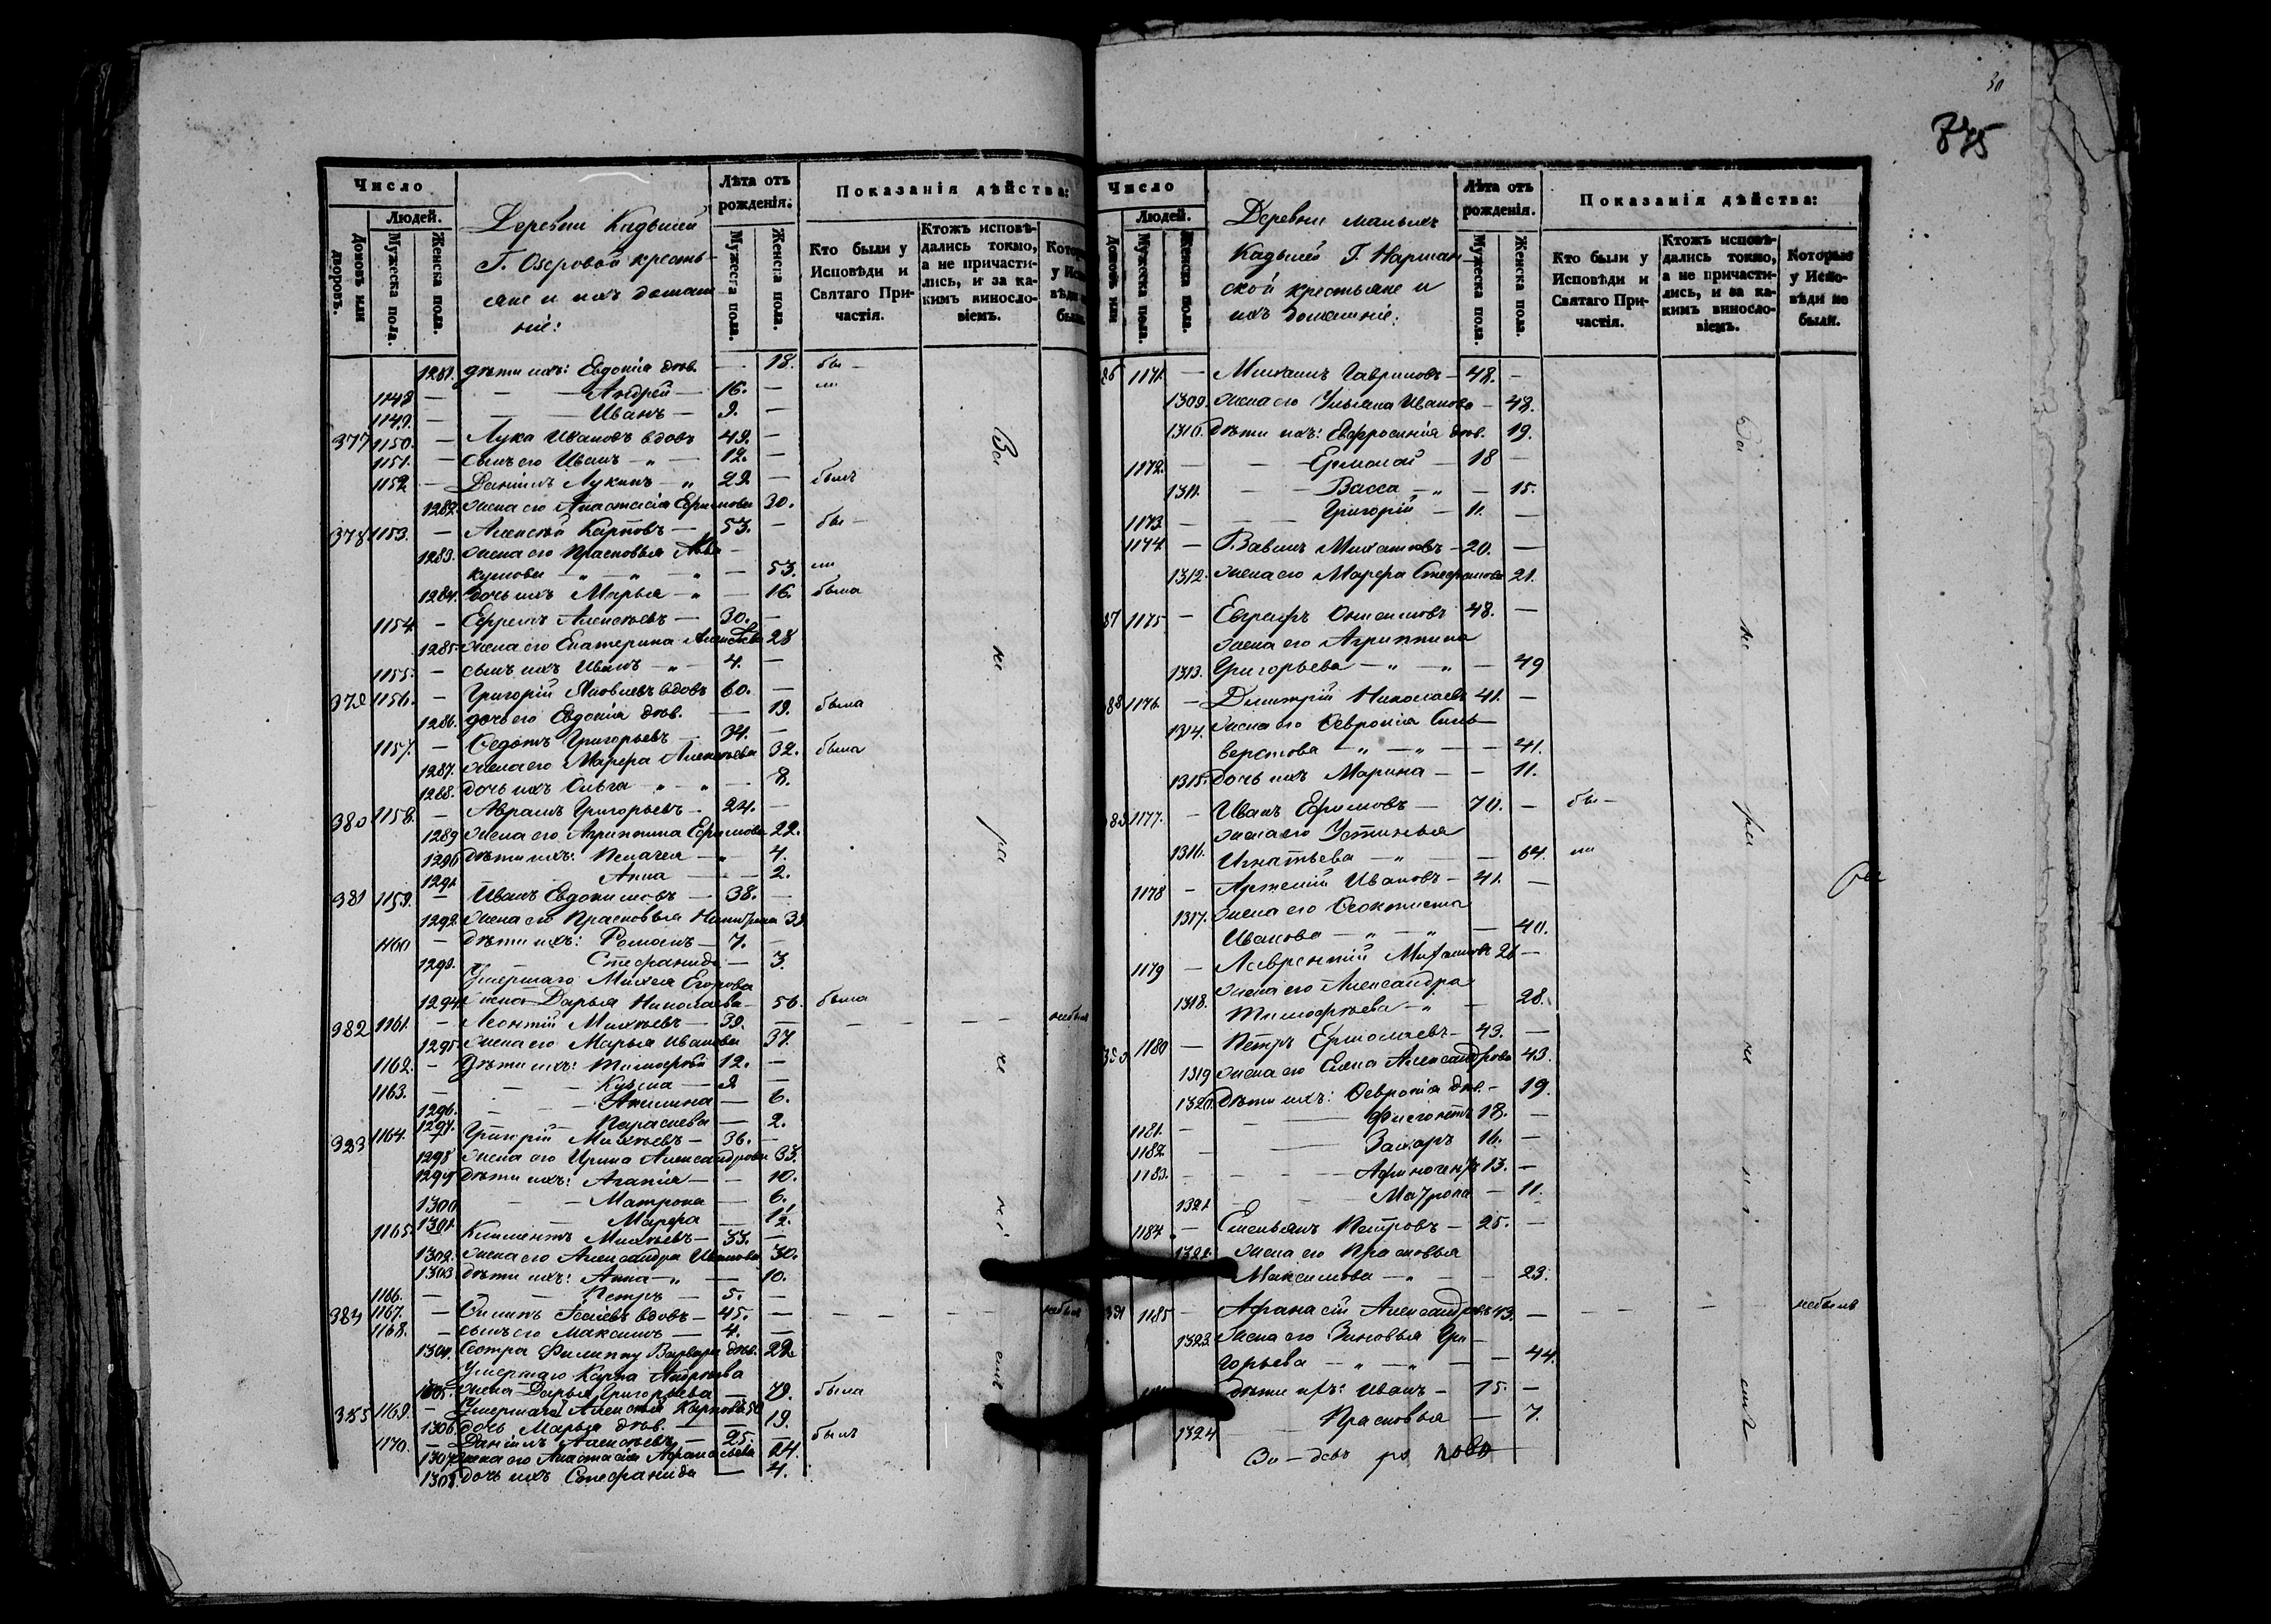 30
875
Число
Людей.
Домовъ или дворовъ.
Мужеска пола.
Женска пола.
Деревни Кадышей
Г. Озеровой кресть-
яне и ихъ домаш
ніе:
Лѣта отъ рожденія.
Мужеска пола.
Женска пола.
Показанія дѣйства:
Кто были у Исповѣди и Святаго Причастія.
Ктожъ исповѣдались токмо, а не причастились, и за какимъ винословіемъ.
1281. дѣти ихъ: Евдокія дѣв. — 18. бы —
1148 — — Андрей — 16.
1149. — — Иванъ — 9. —
377 1150. — Лука Ивановъ вдовъ 49. —
1151. — сынъ его Иванъ — „ — 12. —
1152 — Даніилъ Лукинъ — „ 29. — былъ
1282. жена его Анастасія Ефимова 30.
378 1153. — Алексѣй Карповъ — 53. — бы —
1283. жена его Прасковья Аба —
кумова — „ — „ — „ — 53.
1284. дочь ихъ Марья — „ — 16. была
1154. — Ефремъ Алексѣевъ — 30. —
1285. жена его Екатерина Алексѣева 28
1155. — сынъ ихъ Иванъ — „ — 4. —
379 1156. — Григорій Яковлевъ вдовъ 60. —
1286. дочь его Евдокія дѣв. — 19. была
1157. — Ѳедотъ Григорьевъ — 34. —
1287. жена его Марѳа Алексѣева 32. была
1288. дочь ихъ Ольга „ — „ — 8.
380 1158. — Абрамъ Григорьевъ — 24. —
1289 жена его Агрипина Ефимова 22.
1290 дѣти ихъ: Пелагея — „ — 4.
1291 Анна — — 2.
381 1159. — Иванъ Евдокимовъ — 38. —
1292. жена его Прасковья 39
1160 — дѣти ихъ: Романъ — 7. —
1293. — Стефанида — 3.
Умершаго Михея Егорова
1294. жена Дарья Николаева — 56. была
382 1161. — Леонтій Михѣевъ — 39. — — — — — небылъ
1295. жена его Марья Иванова 37.
1162. — дѣти ихъ: Тимофей 12. —
1163. — — — Кузьма — 9 —
1296. — — Акилина — 6.
1297. — Параскева — 2.
383 1164. — Григорій Михѣевъ — 36. —
1298 жена его Ирина Александрова 33.
1299 дѣти ихъ: Агафія — — 10.
1300 — — Матрона — 6.
1301. — Марѳа — 1/2.
1165. Климентъ Михѣевъ — 33. —
1302. жена его Александра Иванова 30.
1303 дѣти ихъ: Анна — „ — 10.
1166. — — Петръ — 5. —
384 1167. — Филипъ вдовъ — 45. — — — — — небылъ
1168. — сынъ его Максимъ — 4. —
1304. Сестра Филиппу Варвара дѣв. 22
Умершаго Карпа Андреева
1305. жена Дарья Григорьева — 79. была
385 1169. — Умершаго Алексѣй Карповъ 50
1306 дочь Марья дѣв. — — 19.
1170. — Даніилъ Алексѣевъ — 25. — былъ
1307 жена его Анастасія Афанасьева 24.
1308. дочь ихъ Стефанида — 4.
Число
Людей.
Домовъ или
Мужеска пола.
Женска пола.
Деревни малыхъ
Кадышей Г. Нарман
ской крестьяне и
ихъ домашніе:
Лѣта отъ рожденія.
Мужеска пола.
Женска пола.
Показанія дѣйства:
Кто были у Исповѣди и Святаго Причастія.
Ктожъ исповѣдались токмо, а не причастились, и за какимъ винословіемъ.
Которые у Исповѣди не были.
86 1171. — Михаилъ Гавриловъ — 48. —
1309. жена его Ульяна Иванова — 48.
1310. дѣти ихъ: Евфросинія дѣв. 19.
1172. — — Ермолай — 18 —
1311. — — Васса — „ — 15.
1173. — — Григорій — 11. —
1174. — Вавилъ Михайловъ — 20. —
1312. жена его Марѳа Стефанова 21.
87 1175 — Евграфъ Онисимовъ 48. —
жена его Агрипина
1313. Григорьева — „ — „ — 49
88 1176. — Димитрій Николаевъ 41. —
1314. жена его Ѳевронія Силь—
верстова — „ — „ — — 41.
1315. дочь ихъ Марина — — 11.
89 1177. — Иванъ Ефимовъ — 70. — бы —
жена его Устинья
1316. Игнатьева — „ — — 64.
1178 — Артемій Ивановъ — 41. —
1317. жена его Ѳеоктиста
Иванова — „ — „ — 40.
1179 — Лаврентій Михайловъ 26 —
жена его Александра
1318. Тимофѣева — „ — 28.
1180 — Петръ Ермолаевъ — 43. —
1319 жена его Елена Александрова 43.
1320. дѣти ихъ: Ѳевронія дѣв. — 19.
1181. — — Филогонтъ 18. —
1182. — — Захаръ 16. —
1183. — — Афиногенъ 13. —
1321 — — Матрона — 11.
1184 — Емельянъ Петровъ — 25. —
1322. жена его Прасковья
Максимова — „ — — 23.
391 1185 — Афанасій Александровъ 43. — — — небылъ
1323. жена его Зиновья Гри—
горьева — „ — „ — — 44.
дѣти ихъ: Иванъ — 15. —
1324 Прасковья — 7.